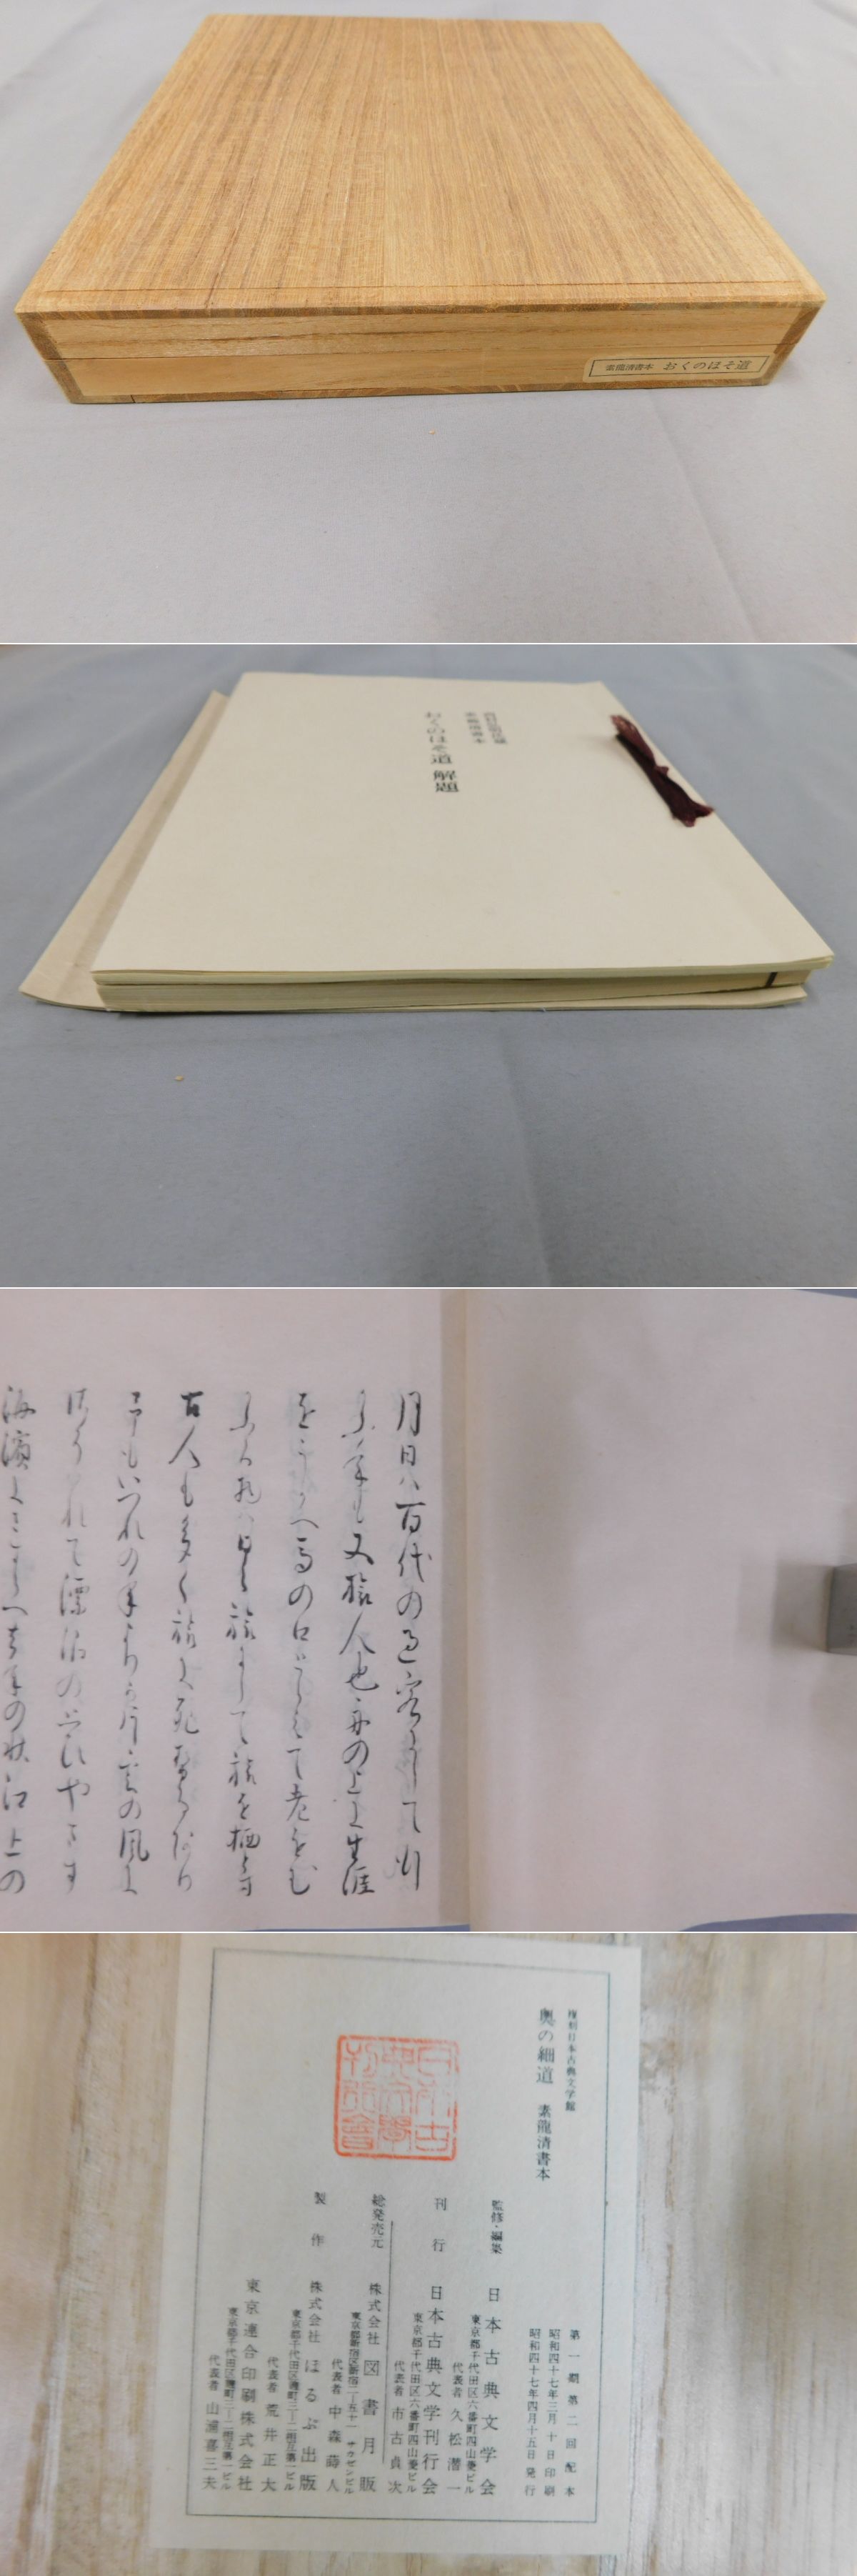 素龍清書本 おくのほそ道
おくのほそ道 解題
月日ハ百代の過客にして行
かふ年も又旅人也舟の上に生涯
をうかへ馬の口とらえて老をむ
かふる物ハ日々旅にして旅を栖とす
古人も多く旅に死せるあり
予もいつれの年よりか片雲の風に
さそはれて漂泊のおもひやます
海濱にさすらへ去年の秋江上の
複刻日本古典文学館
奥の細道 素龍清書本
第一期第二回配本
昭和四十七年三月十日印刷
昭和四十七年四月十五日発行
監修・編集 日本古典文学会
東京都千代田区六番町四山菱ビル
代表者 久松潜一
刊行 日本古典文学刊行会
東京都千代田区六番町四山菱ビル
代表者 市古貞次
総発売元 株式会社 図書月販
代表者 中森蒔人
製作 株式会社 ほるぷ出版
東京都千代田区麹町三―二相互第一ビル
代表者 荒井正大
東京連合印刷株式会社
東京都千代田区麹町三―二相互第一ビル
代表者 山浦喜三夫
日本古典文學刊行會